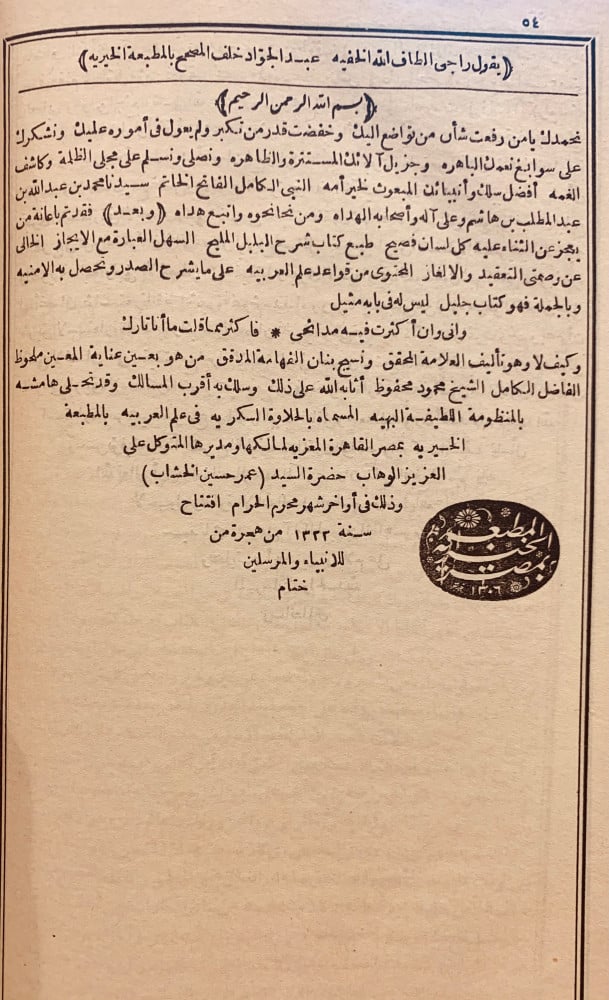 ٥٤
﴿يقول راجي الطاف الله الخفيه عبد الجواد خلف المصحح بالمطبعة الخيريه﴾
﴿بسم الله الرحمن الرحيم﴾
نحمدك يا من رفعت شأن من تواضع اليك وخفضت قدر من تكبر ولم يعول في أموره عليك ونشكرك
على سوابغ نعمك الباهره وجزيل آلائك المستترة والظاهره ونصلى ونسلم على مجلى الظلمة وكاشف
الغمه أفضل رسلك وأنبيائك المبعوث لخير أمه النبي الكامل الفاتح الخاتم سيدنا محمد بن عبد الله بن
عبد المطلب بن هاشم وعلى آله وأصحابه الهداه ومن نحا نحوه واتبع هداه ﴿وبعد﴾ فقد تم باعانة من
يعجز عن الثناء عليه كل لسان فصيح طبع كتاب شرح البلبل المليح السهل العبارة مع الايجاز الخالى
عن وصمتى التعقيد والالغاز المحتوى من قواعد علم العربيه على ما يشرح الصدر ونحصل به الامنيه
وبالجملة فهو كتاب جليل ليس له في بابه مثيل
وانى وان أكثرت فيه مدائحى * فاكثر مما قلت ما أنا تارك
وكيف لا وهو تأليف العلامة المحقق ونسيج بنان الفهامة المدقق من هو بعين عناية المعين ملحوظ
الفاضل الكامل الشيخ محمود محفوظ أثابه الله على ذلك وسلك به أقرب المسالك وقد تحلى هامشه
بالمنظومة اللطيفة البهيه المسماه بالحلاوة السكريه في علم العربيه بالمطبعة
الخيريه بمصر القاهرة المعزيه لمالكها ومديرها المتوكل على
العزيز الوهاب حضرة السيد (عمر حسين الخشاب)
وذلك فى أواخر شهر محرم الحرام افتتاح
سنة ١٣٢٢ من هجرة من
للانبياء والمرسلين
ختام
المطبعة
الخيرية
بمصر
١٣٠٦